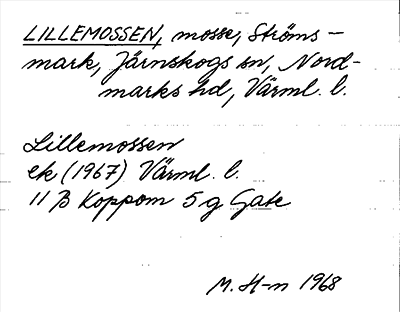 LILLEMOSSEN, mosse, Ströms-
mark, Järnskogs sn, Nord-
marks hd, Värml. l.
Lillemossen
ek (1967) Värml. l.
11 B Koppom 5 g Gate
M. H-n 1968